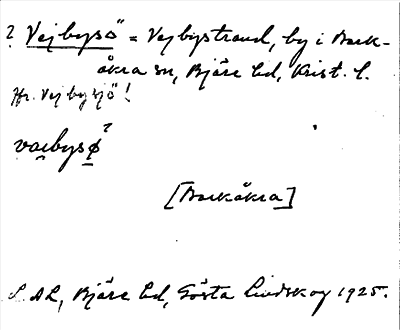 ? Vejbysö = Vejbystrand, by i Bark-
åkra sn, Bjäre hd, Krist. l.
Hr. Vejbysjö!
vai̯bysǿ̱
[Barkåkra]
LAL, Bjäre hd, Gösta Lindskog 1925.